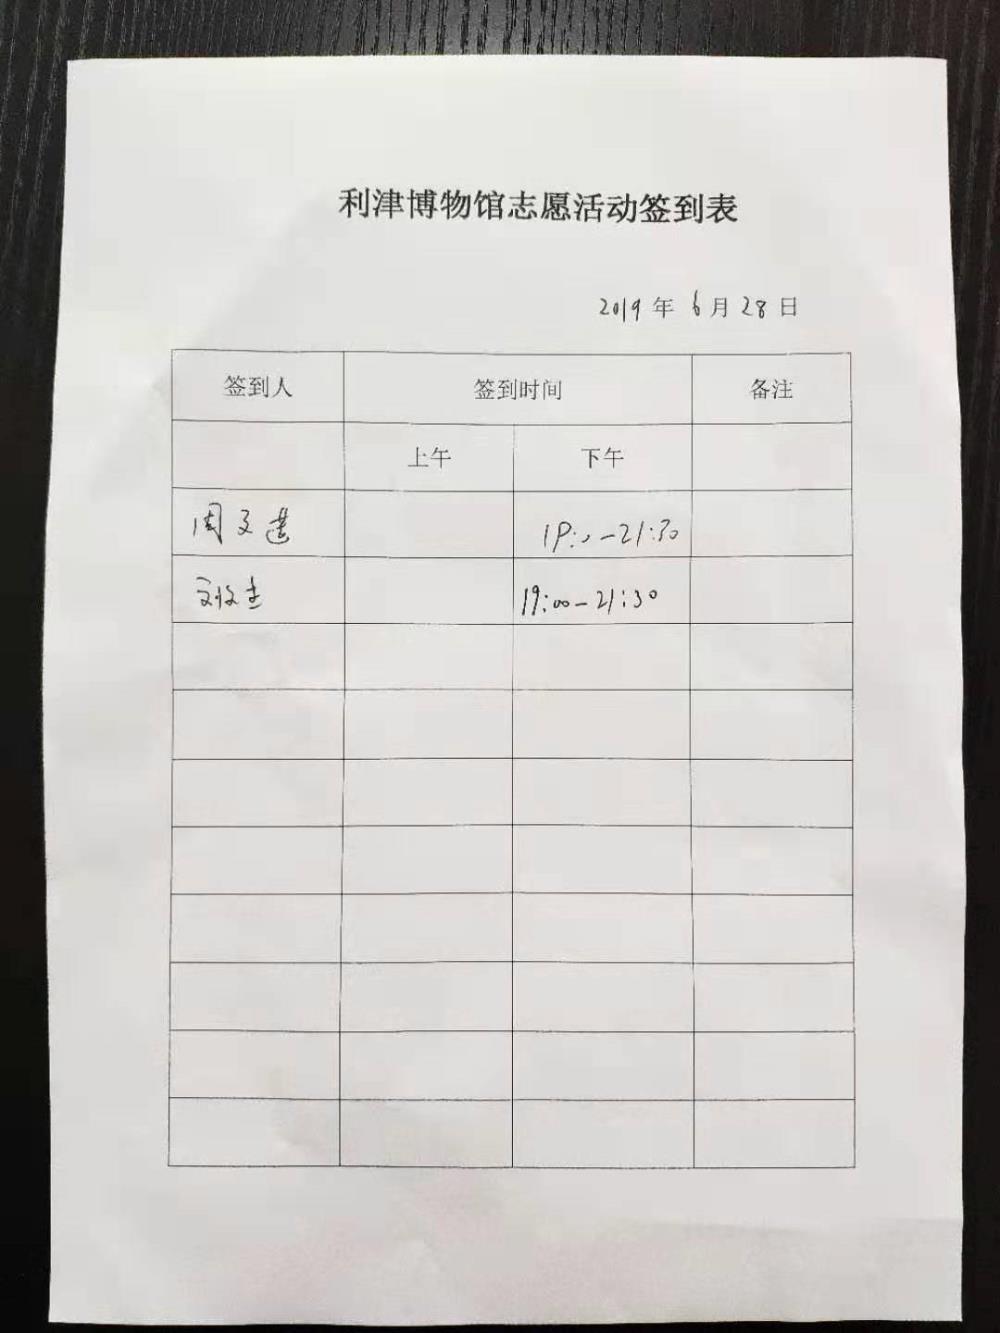 利津博物馆志愿活动签到表
2019年6月28日
签到人 签到时间 备注
上午 下午
周文 19:00-21:30
19:00-21:30